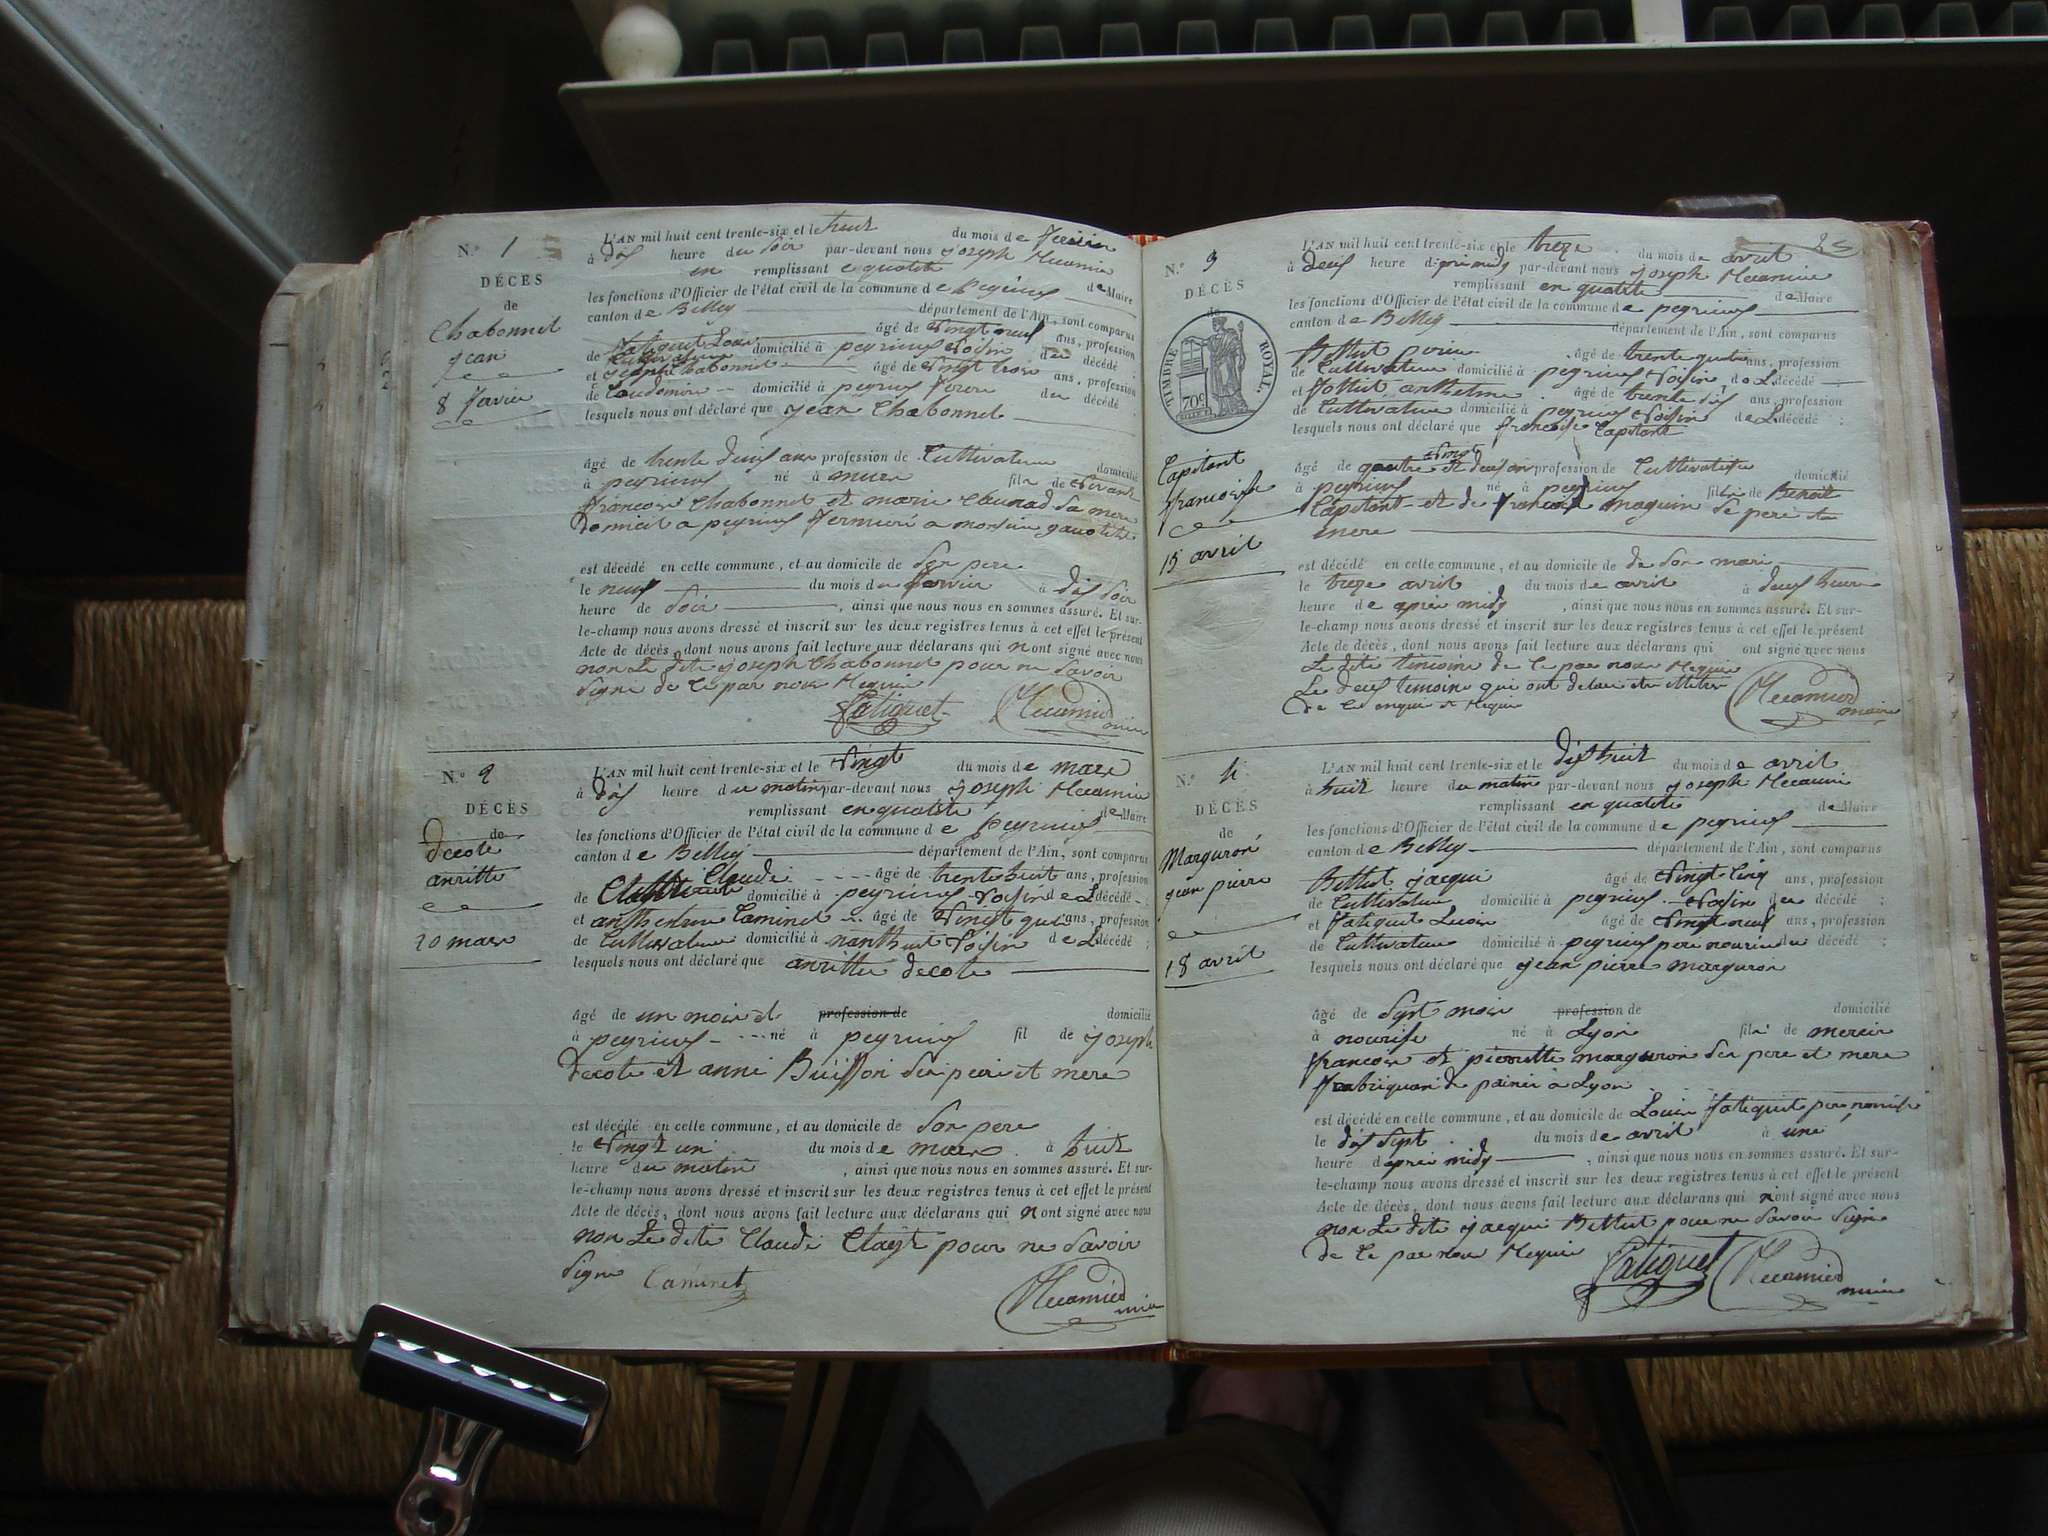 N.º 1
DÉCÈS
de
Chabonnet
jean
8 Fevrier
L'AN mil huit cent trente-six et le huit du mois de Fevrier
à dis heure du Soir par-devant nous joseph Récamier
en remplissant en qualité de Maire
les fonctions d'Officier de l'état civil de la commune de Peyrieus
canton de Belley département de l'Ain, sont comparus
Fatiguet Louis âgé de vingt neuf ans, profession
de Cultivateur domicilié à peyrieus Voisin du décédé ;
et joseph Chabonnet âgé de vingt trois ans, profession
de domicilié à peyrieus frere du décédé :
lesquels nous ont déclaré que jean Chabonnet
âgé de trente deuf ans profession de Cultivateur domicilié
à peyrieus né à fils de
francois Chabonnet et marie sa mere
Domicil a peyrieus fermier a monsieur
est décédé en cette commune, et au domicile de Son pere
le neuf du mois de fevrier à dis Soir
heure de Soir , ainsi que nous nous en sommes assuré. Et sur-
le-champ nous avons dressé et inscrit sur les deux registres tenus à cet effet le présent
Acte de décès, dont nous avons fait lecture aux déclarans qui n ont signé avec nous
non Le dite joseph Chabonnet pour ne Savoir
Signe de Ce par nous Requis
Fatiguet Récamier maire
N.º 2
DÉCÈS
de
decote
anriette
20 mars
L'AN mil huit cent trente-six et le Vingt du mois de mars
à dis heure du matin par-devant nous joseph Récamier
remplissant en qualité de Maire
les fonctions d'Officier de l'état civil de la commune de Peyrieus
canton de Belley département de l'Ain, sont comparus
Claude âgé de trente huit ans, profession
de domicilié à peyrieus Voisin de L décédé ;
et anthelme Caminet âgé de Vingt ans, profession
de Cultivateur domicilié à nanthuit Voisin de L décédé ;
lesquels nous ont déclaré que anriette decote
âgé de un mois et profession de domicilié
à peyrieus né à peyrieus fil de joseph
decote et anne Buisson Ses pere et mere
est décédé en cette commune, et au domicile de Son pere
le Vingt un du mois de mars à huit
heure du matin , ainsi que nous nous en sommes assuré. Et sur-
le-champ nous avons dressé et inscrit sur les deux registres tenus à cet effet le présent
Acte de décès, dont nous avons fait lecture aux déclarans qui n ont signé avec nous
non Le dite Claude Clayt pour ne Savoir
Signe Caminet Récamier maire
N.º 3
DÉCÈS
de
TIMBRE ROYAL.
70c
Capitant
francoise
15 avril
L'AN mil huit cent trente-six et le treze du mois de avril
à deus heure d'aprè midy par-devant nous joseph Récamier
remplissant en qualité de Maire
les fonctions d'Officier de l'état civil de la commune de peyrieus
canton de Belley département de l'Ain, sont comparus
Bettut âgé de trente quatre ans, profession
de Cultivateur domicilié à peyrieus Voisin de L décédé ;
et anthelme âgé de trente dis ans, profession
de Cultivateur domicilié à peyrieus Voisin de L décédé :
lesquels nous ont déclaré que francoise Capitant
âgé de quatre vingt et deus an profession de Cultivatrice domicilié
à peyrieus né à peyrieus fille de Benoit
Capitant et de francoise maguin Se pere et
mere
est décédé en cette commune, et au domicile de de Son mari
le treze avril du mois de avril à deus heure
heure de aprè midy , ainsi que nous nous en sommes assuré. Et sur-
le-champ nous avons dressé et inscrit sur les deux registres tenus à cet effet le présent
Acte de décès, dont nous avons fait lecture aux déclarans qui ont signé avec nous
Le dite temoins de Ce par nous Requis
Le deus temoins qui ont
de Requis Récamier maire
N.º 4
DÉCÈS
de
Marguron
jean pierre
18 avril
L'AN mil huit cent trente-six et le dis huit du mois de avril
à huit heure du matin par-devant nous joseph Récamier
remplissant en qualité de Maire
les fonctions d'Officier de l'état civil de la commune de peyrieus
canton de Belley département de l'Ain, sont comparus
Bettut jacque âgé de Vingt Cinq ans, profession
de Cultivateur domicilié à peyrieus Voisin du décédé ;
et Fatiguet Louis âgé de Vingt neuf ans, profession
de Cultivateur domicilié à peyrieus pere nourisie du décédé ;
lesquels nous ont déclaré que jean pierre marguron
âgé de Sept mois profession de domicilié
à nourise né à Lyon fils de
francois et pierrette marguron Ses pere et mere
à Lyon
est décédé en cette commune, et au domicile de Louis fatiguet pere nourise
le dis Sept du mois de avril à une
heure d'aprè midy , ainsi que nous nous en sommes assuré. Et sur-
le-champ nous avons dressé et inscrit sur les deux registres tenus à cet effet le présent
Acte de décès, dont nous avons fait lecture aux déclarans qui n ont signé avec nous
non Le dite jacque Bettut pour ne Savoir Signe
de Ce par nous Requis Fatiguet Récamier maire